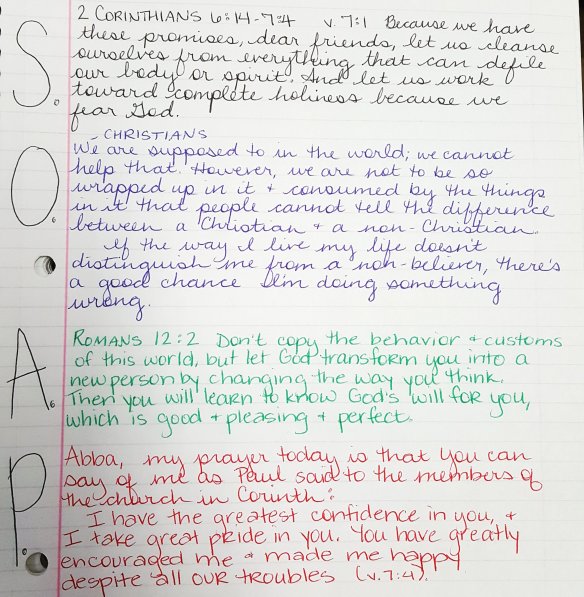 S.
2 CORINTHIANS 6:14-7:4 v. 7:1 Because we have
these promises, dear friends, let us cleanse
ourselves from everything that can defile
our body or spirit. And let us work
toward complete holiness because we
fear God.
O.
CHRISTIANS
We are supposed to in the world; we cannot
help that. However, we are not to be so
wrapped up in it + consumed by the things
in it that people cannot tell the difference
between a Christian + a non-Christian.
If the way I live my life doesn't
distinguish me from a non-believer, there's
a good chance I'm doing something
wrong.
A.
ROMANS 12:2 Don't copy the behavior + customs
of this world, but let God transform you into a
new person by changing the way you think.
Then you will learn to know God's will for you,
which is good + pleasing + perfect.
P.
Abba, my prayer today is that you can
say of me as Paul said to the members of
the church in Corinth:
I have the greatest confidence in you, +
I take great pride in you. You have greatly
encouraged me + made me happy
despite all our troubles (v. 7:4).